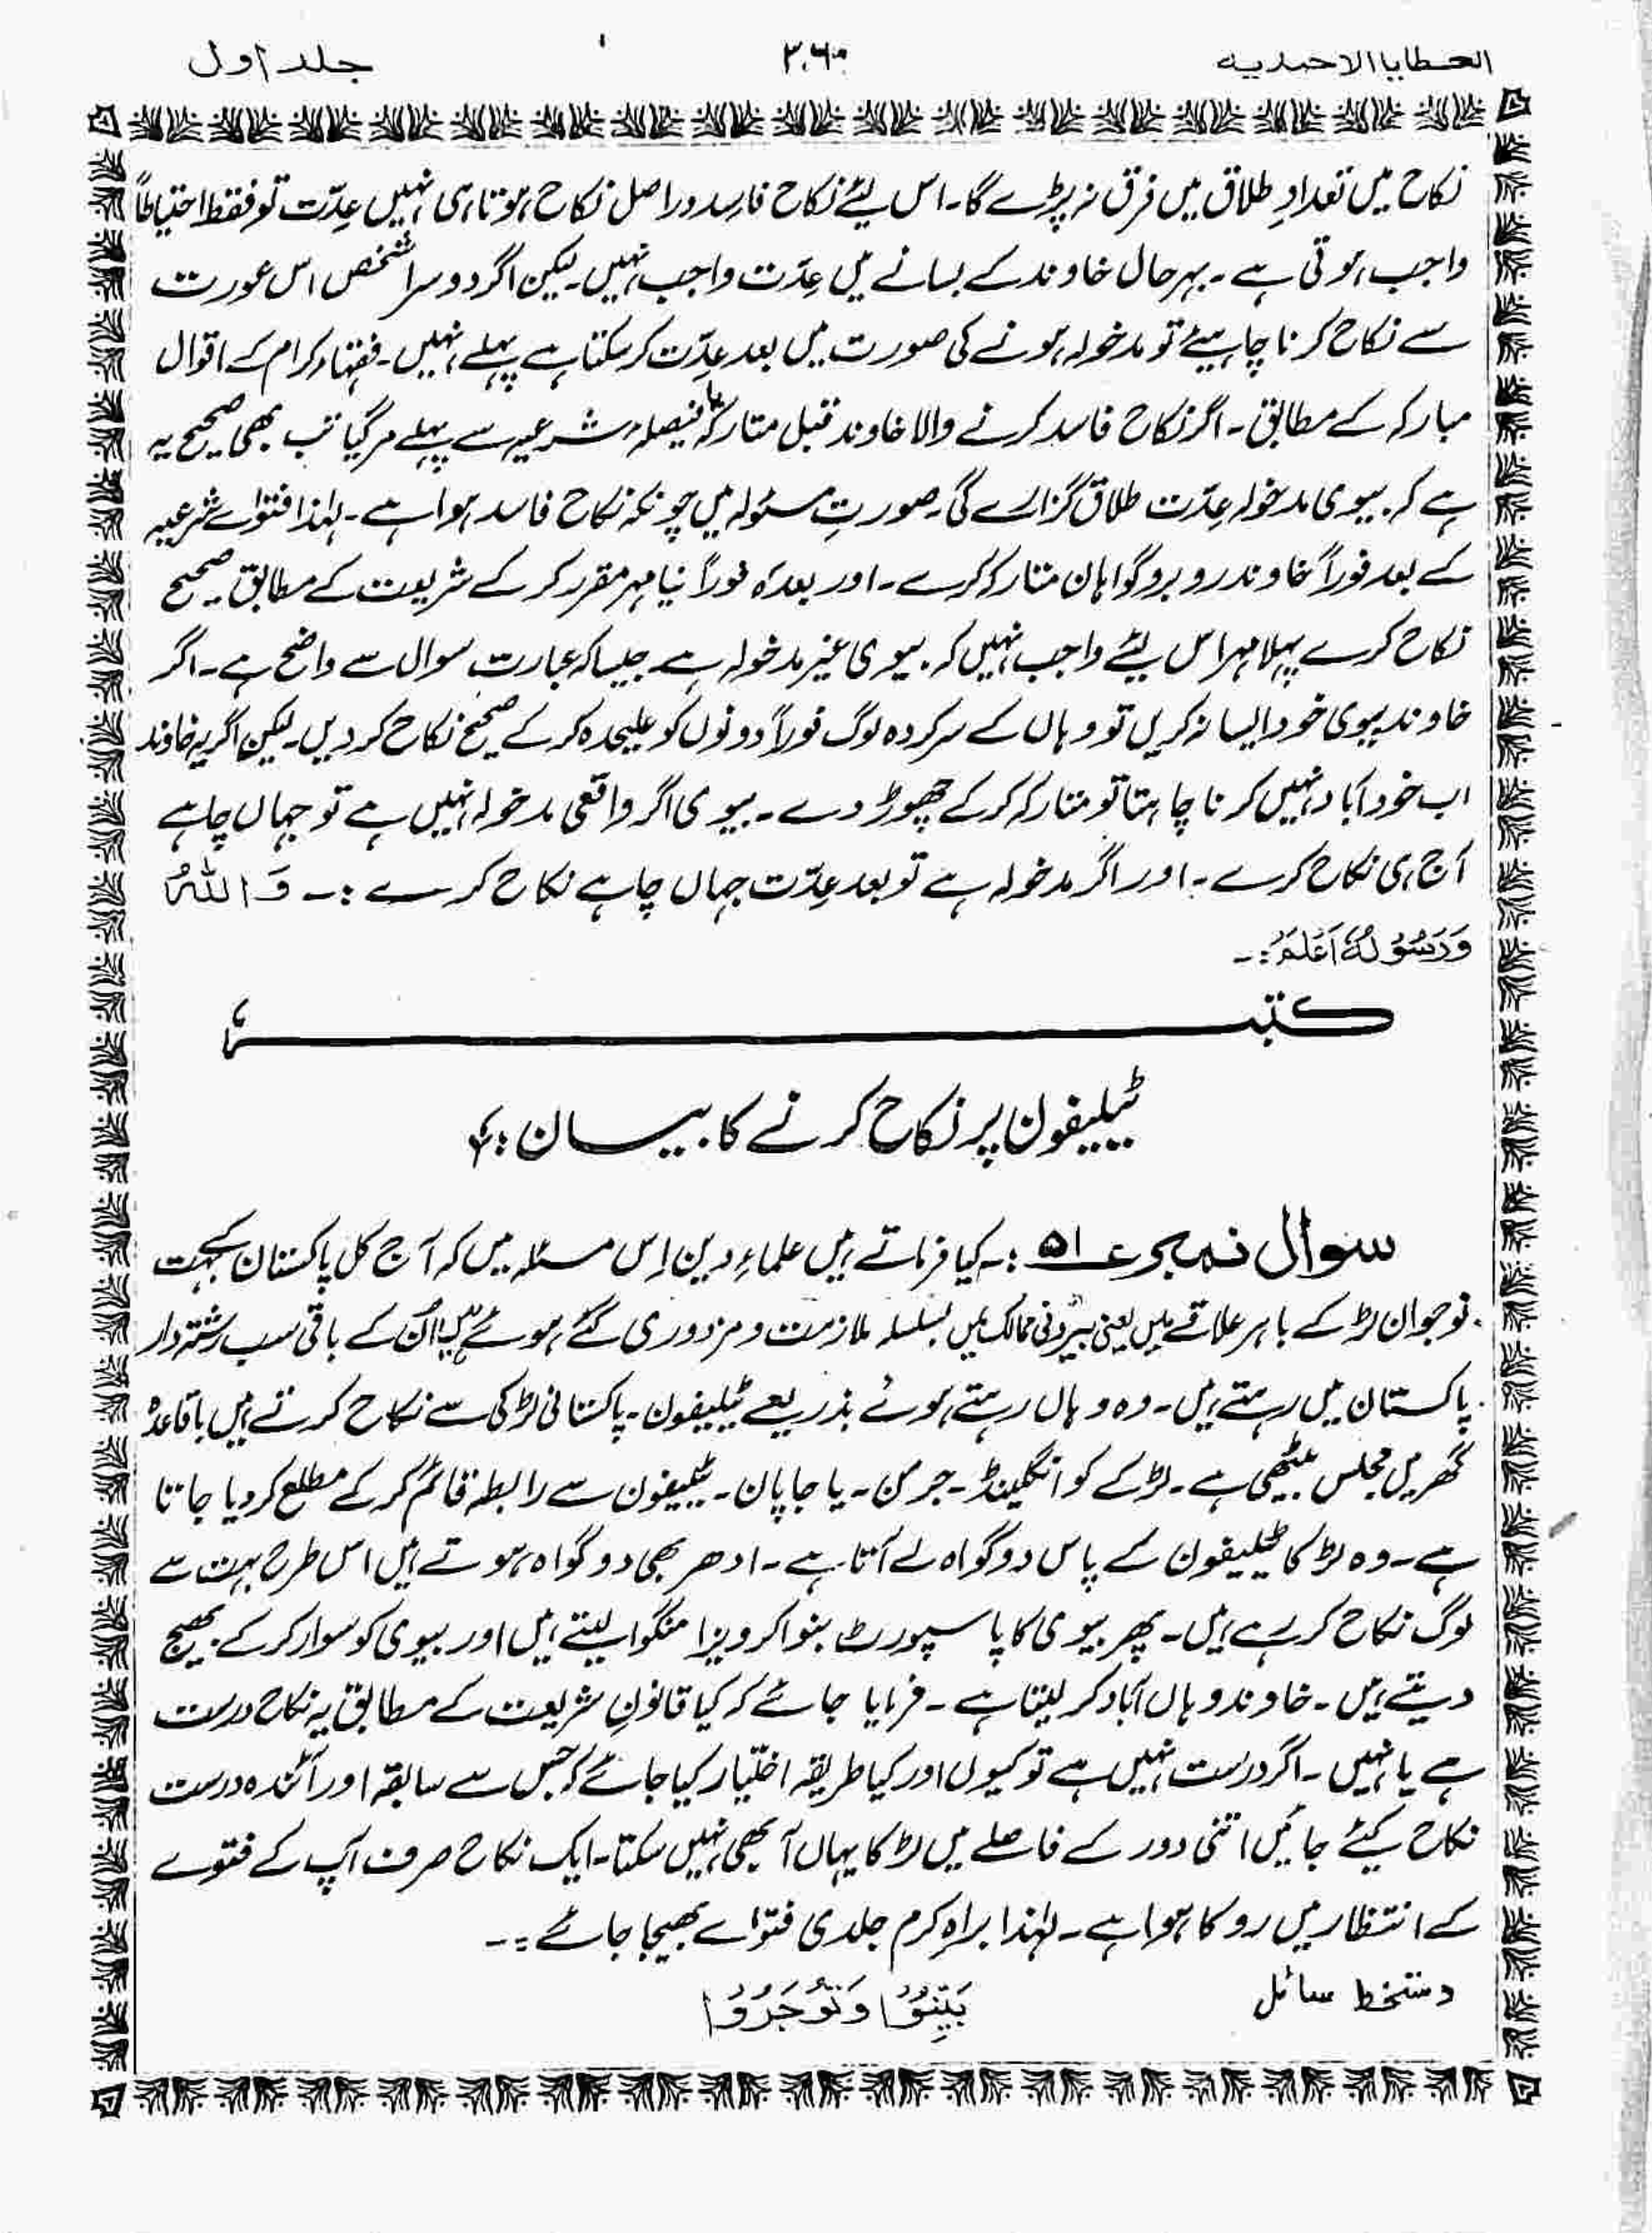 العطایا الاحمدیہ ۳۶۰ جلد اول
نکاح میں تعدادِ طلاق میں فرق نہ پڑے گا۔ اس لیئے نکاح فاسد دراصل نکاح ہوتا ہی نہیں عِدّت تو فقط احتیاطاً
واجب ہوتی ہے۔ بہرحال خاوند کے بسانے میں عِدّت واجب نہیں۔ لیکن اگر دوسرا شخص اس عورت
سے نکاح کرنا چاہیئے تو مدخولہ ہونے کی صورت میں بعد عِدّت کر سکتا ہے پہلے نہیں۔ فقہاء کرام کے اقوال
مبارکہ کے مطابق۔ اگر نکاح فاسد کرنے والا خاوند قبل متارکہ یا فیصلہء شرعیہ سے پہلے مر گیا تب بھی صحیح یہ
ہے کہ بیوی مدخولہ عِدّت طلاق گزارے گی۔ صورتِ مسئولہ میں چونکہ نکاح فاسد ہوا ہے۔ لہٰذا فتوٰے شرعیہ
کے بعد فوراً خاوند روبرو گواہان متارکہ کرے۔ اور بعدہٗ فوراً نیا مہر مقرر کر کے شریعت کے مطابق صحیح
نکاح کرے پہلا مہر اس لیئے واجب نہیں کہ بیوی غیر مدخولہ ہے جیسا کہ عبارت سوال سے واضح ہے۔ اگر
خاوند بیوی خود ایسا نہ کریں تو وہاں کے سرکردہ لوگ فوراً دونوں کو علیحدہ کر کے صحیح نکاح کر دیں۔ لیکن اگر یہ خاوند
اب خود آباد نہیں کرنا چاہتا تو متارکہ کر کے چھوڑ دے۔ بیوی اگر واقعی مدخولہ نہیں ہے تو جہاں چاہے
آج ہی نکاح کرے۔ اور اگر مدخولہ ہے تو بعد عِدّت جہاں چاہے نکاح کرے :۔ وَاللّٰہُ
وَرَسُوْلُہٗ اَعْلَمُ :۔
کتبہ
ٹیلیفون پر نکاح کرنے کا بیان :
سوال نمبر ۵۱ :۔ کیا فرماتے ہیں علماءِ دین اِس مسئلہ میں کہ آج کل پاکستان کے بہت
نوجوان لڑکے باہر علاقے میں یعنی بیرونی ممالک میں بسلسلہ ملازمت و مزدوری گئے ہوئے ہیں اُن کے باقی سب رشتہ دار
پاکستان میں رہتے ہیں۔ وہ وہاں رہتے ہوئے بذریعے ٹیلیفون۔ پاکستانی لڑکی سے نکاح کرتے ہیں باقاعدہ
گھر میں مجلس بیٹھی ہے۔ لڑکے کو انگلینڈ۔ جرمن۔ یا جاپان۔ ٹیلیفون سے رابطہ قائم کر کے مطلع کر دیا جاتا
ہے۔ وہ لڑکا ٹیلیفون کے پاس دو گواہ لے آتا ہے۔ ادھر بھی دو گواہ ہوتے ہیں اس طرح بہت سے
لوگ نکاح کر رہے ہیں۔ پھر بیوی کا پاسپورٹ بنوا کر ویزا منگوا لیتے ہیں اور بیوی کو سوار کر کے بھیج
دیتے ہیں۔ خاوند وہاں آباد کر لیتا ہے۔ فرمایا جائے کہ کیا قانونِ شریعت کے مطابق یہ نکاح درست
ہے یا نہیں۔ اگر درست نہیں ہے تو کیوں اور کیا طریقہ اختیار کیا جائے کہ جس سے سابقہ اور آئندہ درست
نکاح کیئے جائیں اتنی دور کے فاصلے میں لڑکا یہاں آ بھی نہیں سکتا۔ ایک نکاح صرف آپ کے فتوے
کے انتظار میں روکا ہوا ہے۔ لہٰذا براہِ کرم جلدی فتوٰاے بھیجا جائے :۔
دستخط سائل
بَیِّنُوْا وَتُوْجَرُوْا